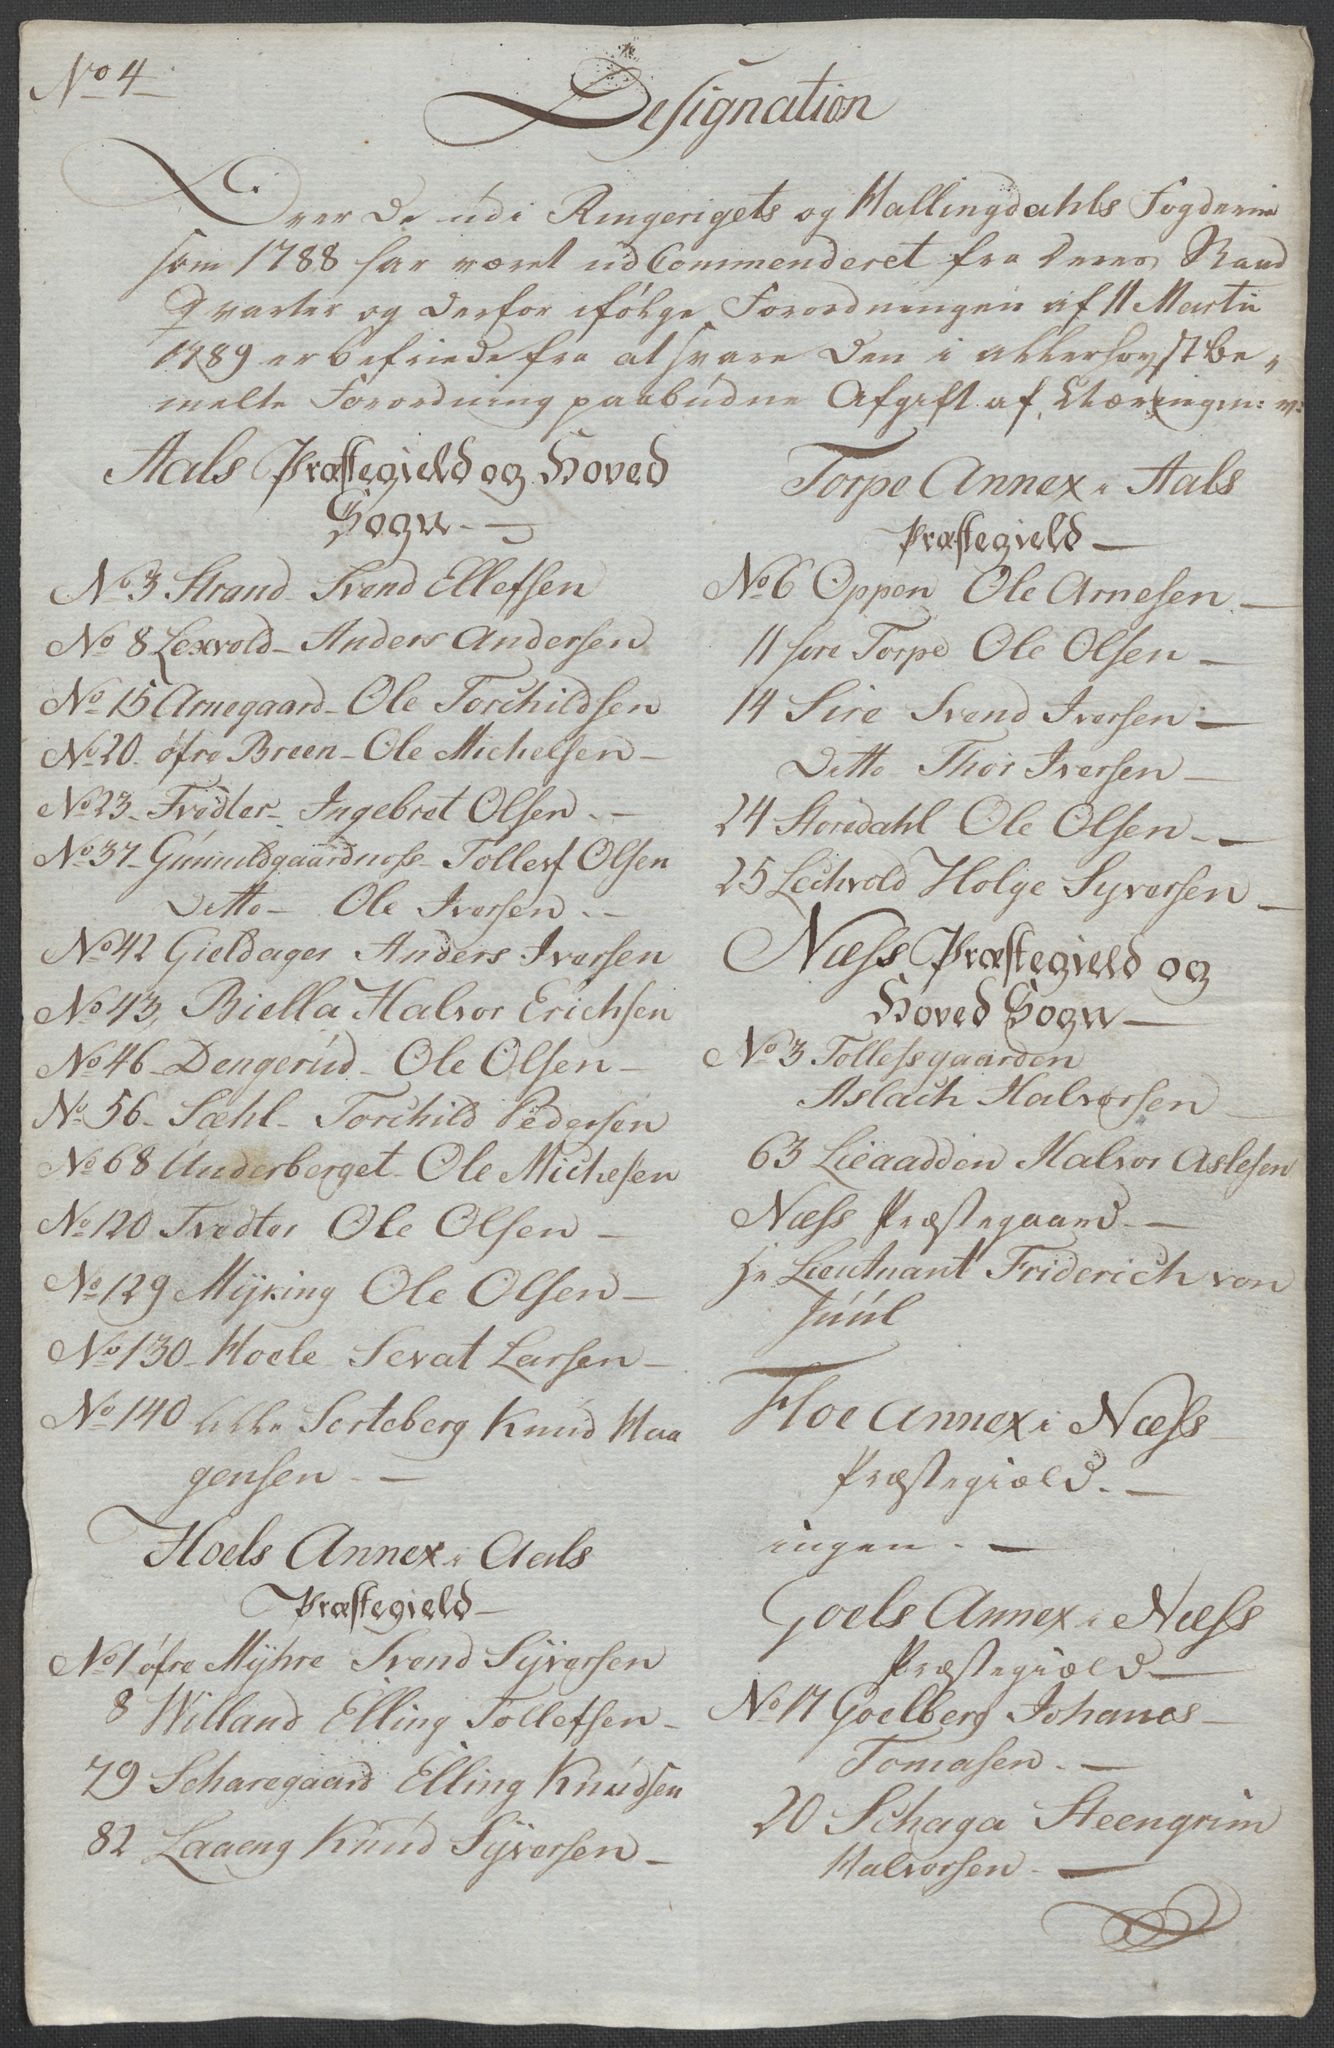 No 4
Designation
Over De udi Ringerigets og Hallingdahls Fogderie
som 1788 har været udCommenderet fra deres Stand
Qvarter og derfor ifølge Forordningen af 11 Martii
1789 er befriede fra at svare den i allerhøyst be-
melte Forordning paabudne Afgift af
Aals Præstegield og Hoved
Sogn
No 3 Strand Svend Ellefsen
No 8 Lexvold Anders Andersen
No 15 Arnegaard Ole Torchildsen
No 20 øfre Breen Ole Michelsen
No 23 Tvedter Ingebret Olsen
No 37 Gunnildgaardnoss Tollef Olsen
Ditto Ole Iversen
No 42 Gieldager Anders Iversen
No 43 Biella Halvor Erichsen
No 46 Dengerud Ole Olsen
No 56 Sæhl Torchild Pedersen
No 68 Underberget Ole Michesen
No 120 Tvedter Ole Olsen
No 129 Myking Ole Olsen
No 130 Hoele Sevat Larsen
No 140 lille Sorteberg Knud Haa
gensen
Hoels Annex i Aals
Præstegield
No 1 øfre Myhre Svend Syversen
8 Villand Elling Tollefsen
79 Scharegaard Elling Knudsen
82 Laaeng Knud Syversen
Torpe Annex i Aals
Præstegield
No 6 Oppen Ole Arnesen
11 søre Torpe Ole Olsen
14 Sire Svend Iversen
Ditto Thor Iversen
24 Storedahl Ole Olsen
25 Lechvold Holge Syversen
Næss Præstegield og
Hoved Sogn
No 3 Tollefsgaarden
Aslach Halvorsen
63 Lieaadden Halvor Aslesen
Næss Præstegaard
Hr Lieutnant Friderich von
Juul
Floe Annex i Næss
Præstegiæld
ingen
Goels Annex i Næss
Præstegiæld
No 17 Goelberg Johanes
Tomasen
20 Schaga Steengrim
Halvorsen